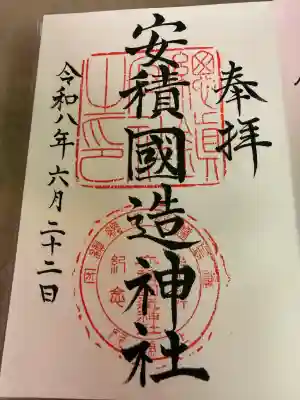 奉拝
安積國造神社
令和八年六月二十二日
紀念